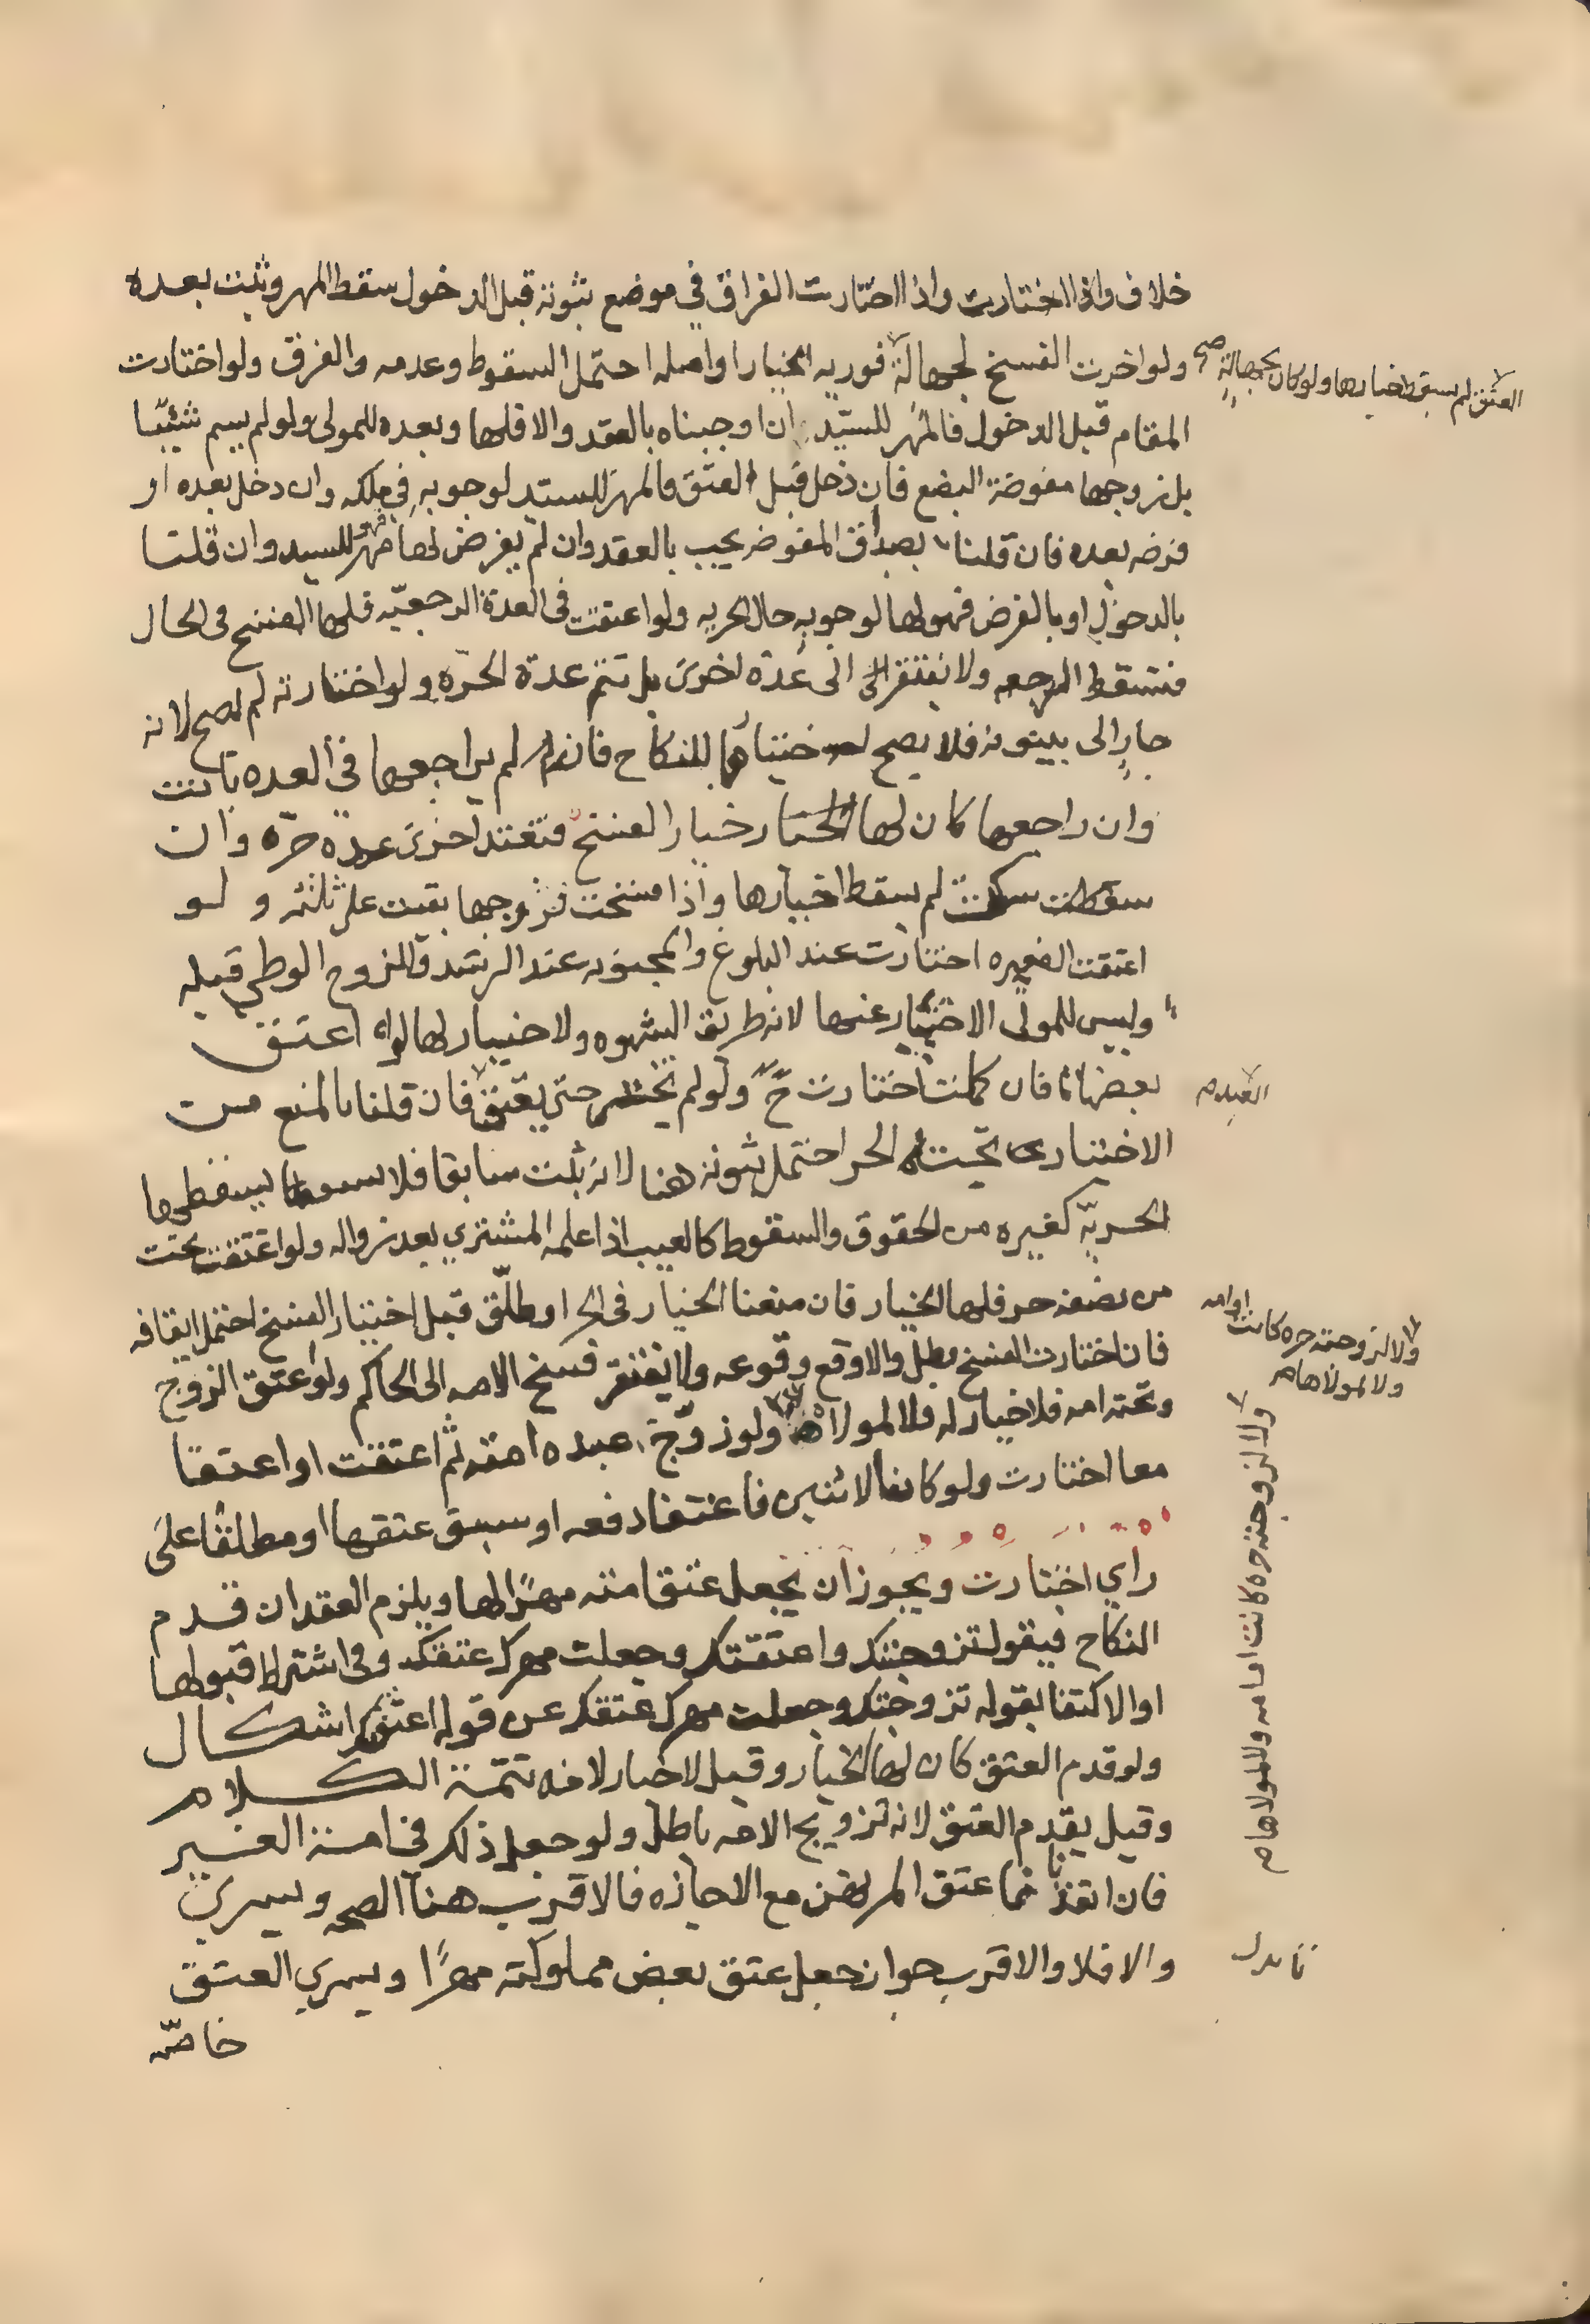 خلاف واذا اختارت واذا اختارت الفراق في موضع ثبوته قبل الدخول سقط المهر وثبت بعده
ولو اخرت الفسخ لجهالة فوريه الخيار او اصله احتمل السقوط وعدمه والفرق ولو اختارت
العتق لم يسقط خيارها ولو كان لجهالة صح
المقام قبل الدخول فالمهر للسيّد ان اوجبناه بالعقد والا فلها وبعده للمولى ولو لم يسم شيئًا
بل زوجها مفوضة البضع فان دخل قبل العتق فالمهر للسيد لوجوبه في ملكه وان دخل بعده او
فرضه بعده فان قلنا بصداق المفوضه يجب بالعقد وان لم يفرض لها فهو للسيد وان قلنا
بالدخول او بالفرض فهو لها لوجوبه حال الحريه ولو اعتقت في العدة الرجعيّه فلها الفسخ في الحال
فتسقط الرجعه ولا يفتقر الى عدة اخرى بل تتم عدة الحرّه ولو اختارته لم يصح لانه
جارٍ الى بينونه فلا يصح اختيارها للنكاح فان لم يراجعها في العده بانت
وان راجعها كان لها خيار الفسخ فتعتد اخرى عدة حرّه وان
سكتت لم يسقط اختيارها واذا فسخت فتزوجها بقيت على ثلثة ولو
اعتقت الصغيره اختارت عند البلوغ والمجنونه عند الرشد وللزوج الوطي قبله
وليس للمولى الاختيار عنها لانه طريق الشهوه ولا خيار لها لو اعتق
بعضها فان كملت اختارت ح ولو لم تختر حتى يعتق فان قلنا بالمنع من
العبد م
الاختيار تحت الحر احتمل ثبوته هنا لانه ثبت سابقا فلا يسقطها
الحريّه كغيره من الحقوق والسقوط كالعيب اذا علمه المشتري بعد زواله ولو اعتقت تحت
من نصفه حر فلها الخيار فان منعنا الخيار في الحر او طلّق قبل اختيار الفسخ احتمل ايقافه
فان اختارت الفسخ بطل والا وقع وقوعه ولا يفتقر فسخ الامه الى الحاكم ولو اعتق الزوج
ولا لزوجته حره كانت او امه
ولا لمولاها م
وتحته امه فلا خيار له فلا لمولاه ولو زوّج عبده امته ثم اعتقت او اعتقا
ولا لزوجته حره كانت او امه ولا لمولاها م
معا اختارت ولو كانا لاثنين فاعتقا دفعه او سبق عتقها او مطلقًا على
راي اختارت ويجوز ان يجعل عتق امته مهرًا لها ويلزم العقد ان قدم
النكاح فيقول تزوجتك واعتقتك وجعلت مهرك عتقك وفي اشتراط قبولها
او الاكتفا بقوله تزوجتك وجعلت مهرك عتقك عن قوله اعتقتك اشكال
ولو قدم العتق كان لها الخيار وقيل لا خيار لانه تتمة الكلام
وقيل يقدم العتق لانه تزويج الامه باطل ولو جعل ذلك في امة الغير
فان انفذنا عتق المرتهن مع الاجازه فالاقرب هنا الصحه ويسري
والا فلا والاقرب جواز جعل عتق بعض مملوكته مهرًا ويسري العتق
خاصّه